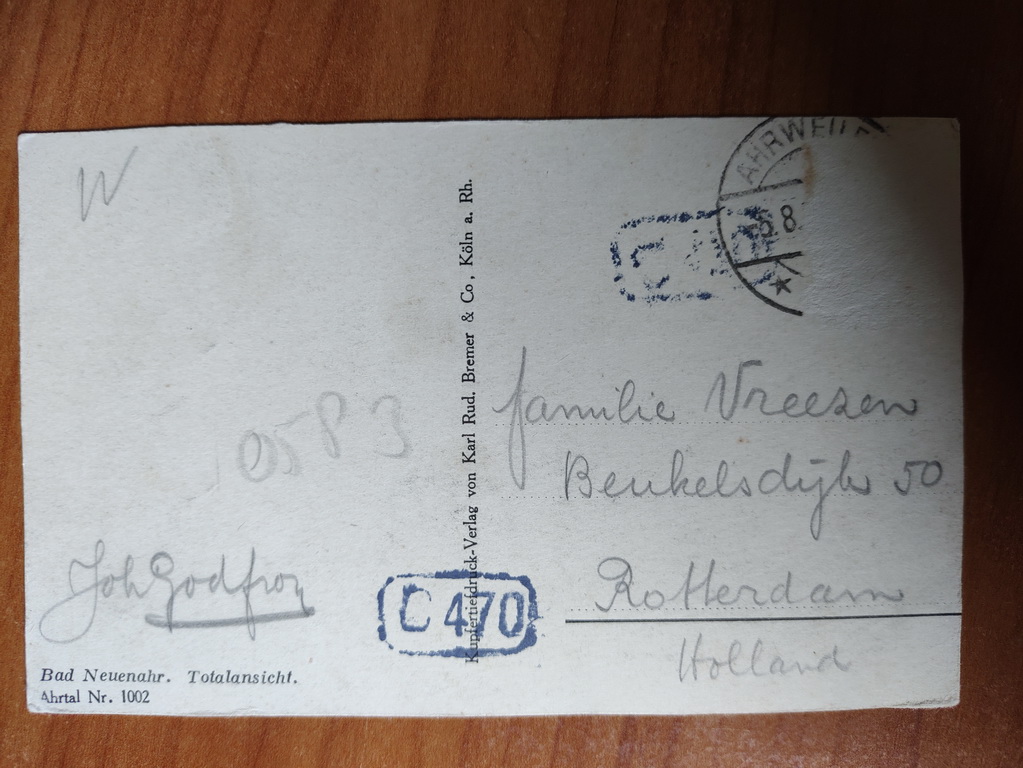 W
0583
Joh Godfroy
Bad Neuenahr. Totalansicht.
Ahrtal Nr. 1002
C 470
Kupfertiefdruck-Verlag von Karl Rud. Bremer & Co., Köln a. Rh.
AHRWEILE
8
familie Vreezen
Beukelsdijk 50
Rotterdam
Holland